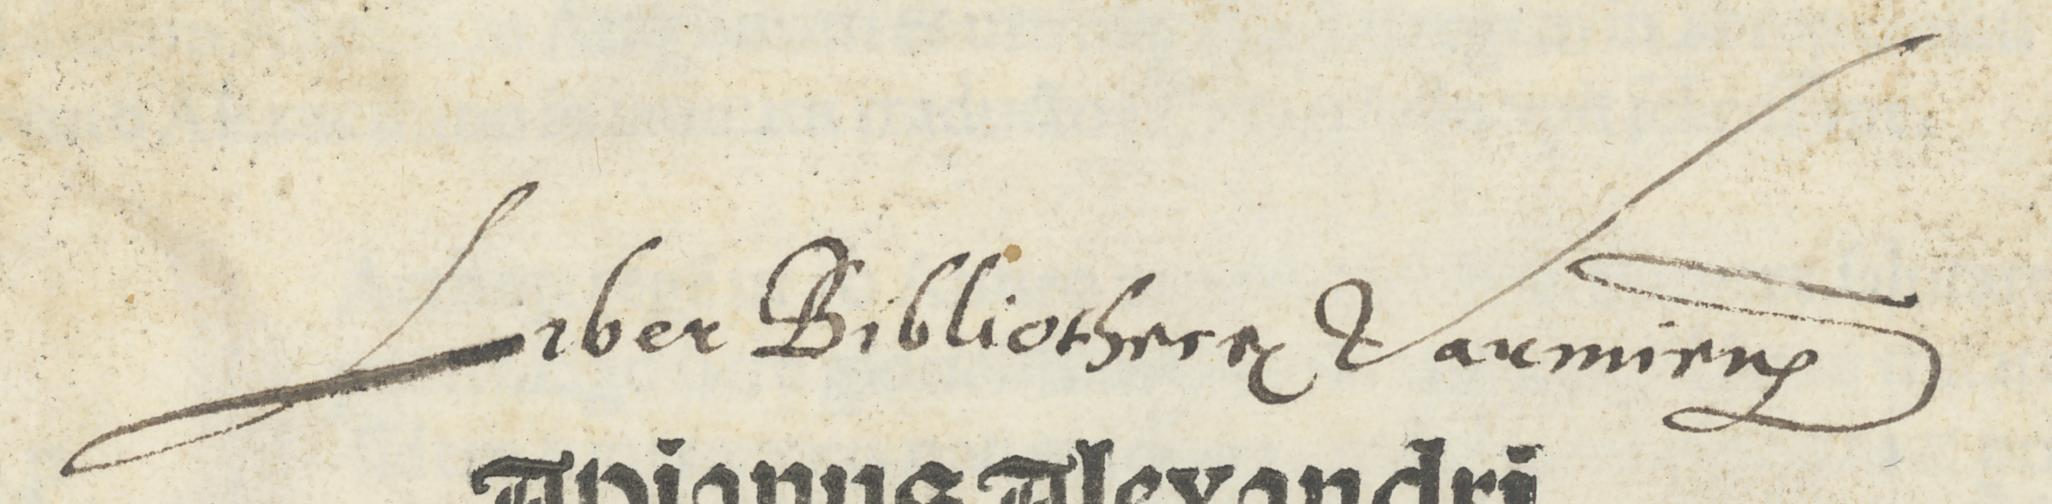 Liber Bibliothecę Varmienꝭ
Apianus Alexandri